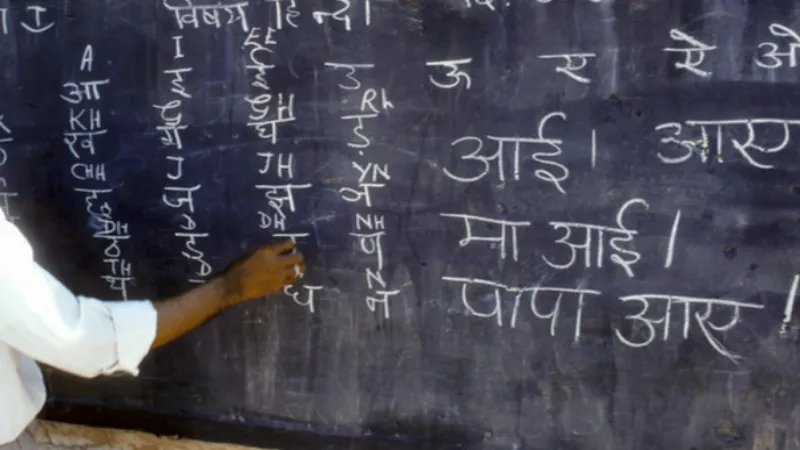 विषय हिन्दी।
A I EE
आ इ ई उ ऊ ए ऐ ओ
KH H Rh
ख घ ड़
आई। आए
CHH J JH YN
छ ज झ ञ
DH NH
मा आई।
ण
TH N
थ ध न
पापा आए।